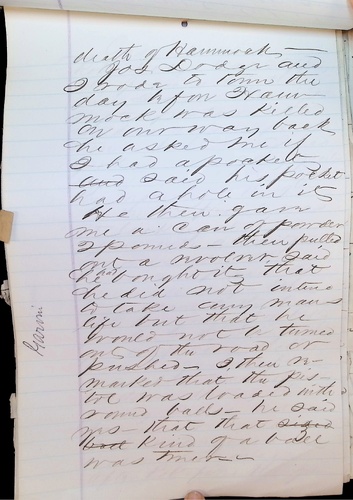 death of Hammock,—
Jos Dodge and
I rode to town the
day before Ham-
mock was killed
on our way back
he asked me if
I had a pocket
and said his pocket
had a hole in it
He then gave
me a can of powder
2 pounds — then pulled
out a revolver. said
he had bought it, that
he did not intend
to take any mans
life but that he
would not be turned
out of the road or
pushed — I then re-
marked that the pis-
tol was loaded with
round balls — he said
yes — that that sized
had kind of a ball
was true —
Garvin